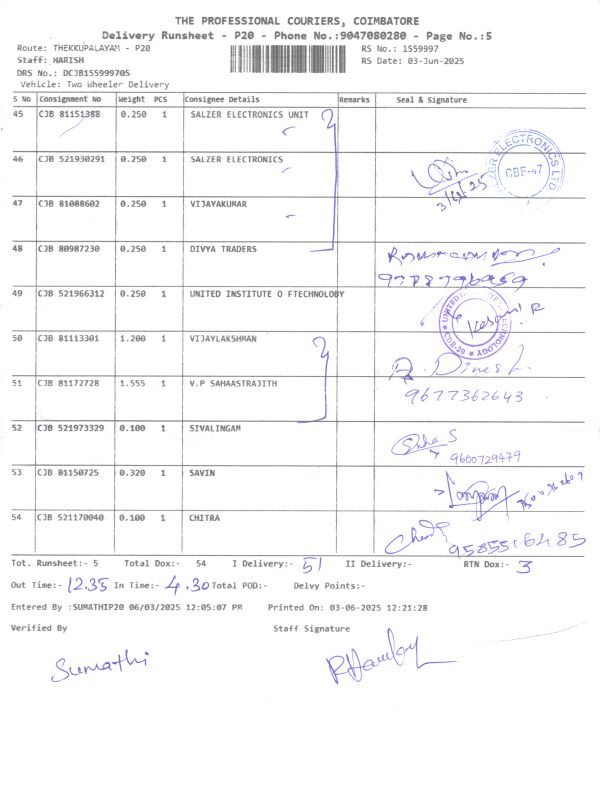 THE PROFESSIONAL COURIERS, COIMBATORE
Delivery Runsheet - P20 - Phone No.:9047080280 - Page No.:5
Route: THEKKUPALAYAM - P20 RS No.: 1559997
Staff: HARISH RS Date: 03-Jun-2025
DRS No.: DCJB155999705
Vehicle: Two Wheeler Delivery
S No Consignment No Weight PCS Consignee Details Remarks Seal & Signature
45 CJB 81151388 0.250 1 SALZER ELECTRONICS UNIT
46 CJB 521930291 0.250 1 SALZER ELECTRONICS
SALZER ELECTRONICS LTD CBE-47
3/6/25
47 CJB 81088602 0.250 1 VIJAYAKUMAR
48 CJB 80987230 0.250 1 DIVYA TRADERS
49 CJB 521966312 0.250 1 UNITED INSTITUTE O FTECHNOLOGY
UNITED CBE-20
Kesavi R
50 CJB 81113301 1.200 1 VIJAYLAKSHMAN
Dinesh
51 CJB 81172728 1.555 1 V.P SAHAASTRAJITH
9677362643
52 CJB 521973329 0.100 1 SIVALINGAM
9600729479
53 CJB 81150725 0.320 1 SAVIN
54 CJB 521170040 0.100 1 CHITRA
9585516485
Tot. Runsheet:- 5 Total Dox:- 54 I Delivery:- 51 II Delivery:- RTN Dox:- 3
Out Time:- 12.35 In Time:- 4.30 Total POD:- Delvy Points:-
Entered By :SUMATHIP20 06/03/2025 12:05:07 PM Printed On: 03-06-2025 12:21:28
Verified By Staff Signature
Sumathi